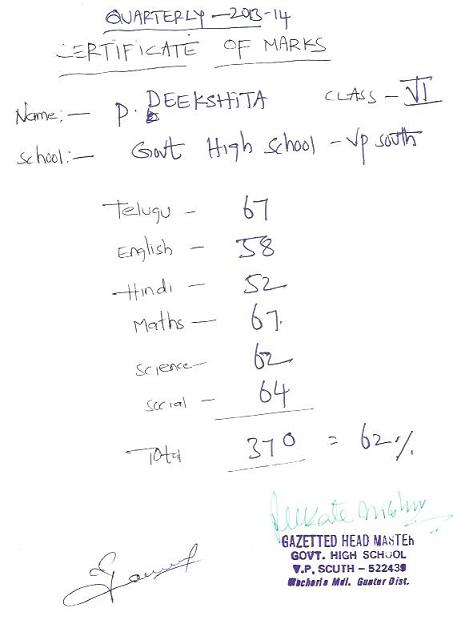 QUARTERLY - 2013-14
CERTIFICATE OF MARKS
Name:- P. DEEKSHITA CLASS - VI
School:- Govt High School - Vp south
Telugu - 67
English - 58
Hindi - 52
Maths - 67.
Science - 62
Social - 64
Total 370 = 62%
GAZETTED HEAD MASTER
GOVT. HIGH SCHOOL
V.P. SOUTH - 522439
Macharla Mdl. Guntur Dist.